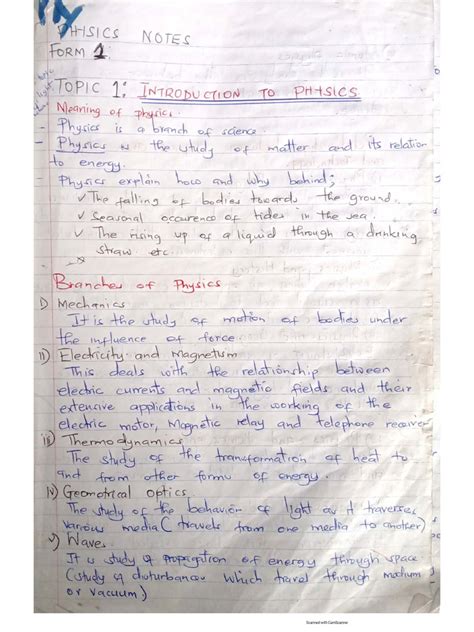 PHYSICS NOTES
FORM 1
TOPIC 1: INTRODUCTION TO PHYSICS
Meaning of physics.
- Physics is a branch of science.
- Physics is the study of matter and its relation
to energy.
- Physics explain how and why behind;
✓ The falling of bodies towards the ground.
✓ Seasonal occurence of tides in the sea.
✓ The rising up of a liquid through a drinking
straw etc.
Branches of Physics
i) Mechanics
It is the study of motion of bodies under
the influence of force
ii) Electricity and Magnetism
This deals with the relationship between
electric currents and magnetic fields and their
extensive applications in the working of the
electric motor, Magnetic relay and telephone receiver
iii) Thermodynamics
The study of the transformation of heat to
and from other forms of energy.
iv) Geometrical optics
The study of the behavior of light as it traverses
various media (travels from one media to another)
v) Waves
It is study of propagation of energy through space
(study of disturbances which travel through medium
or vacuum)
Scanned with CamScanner